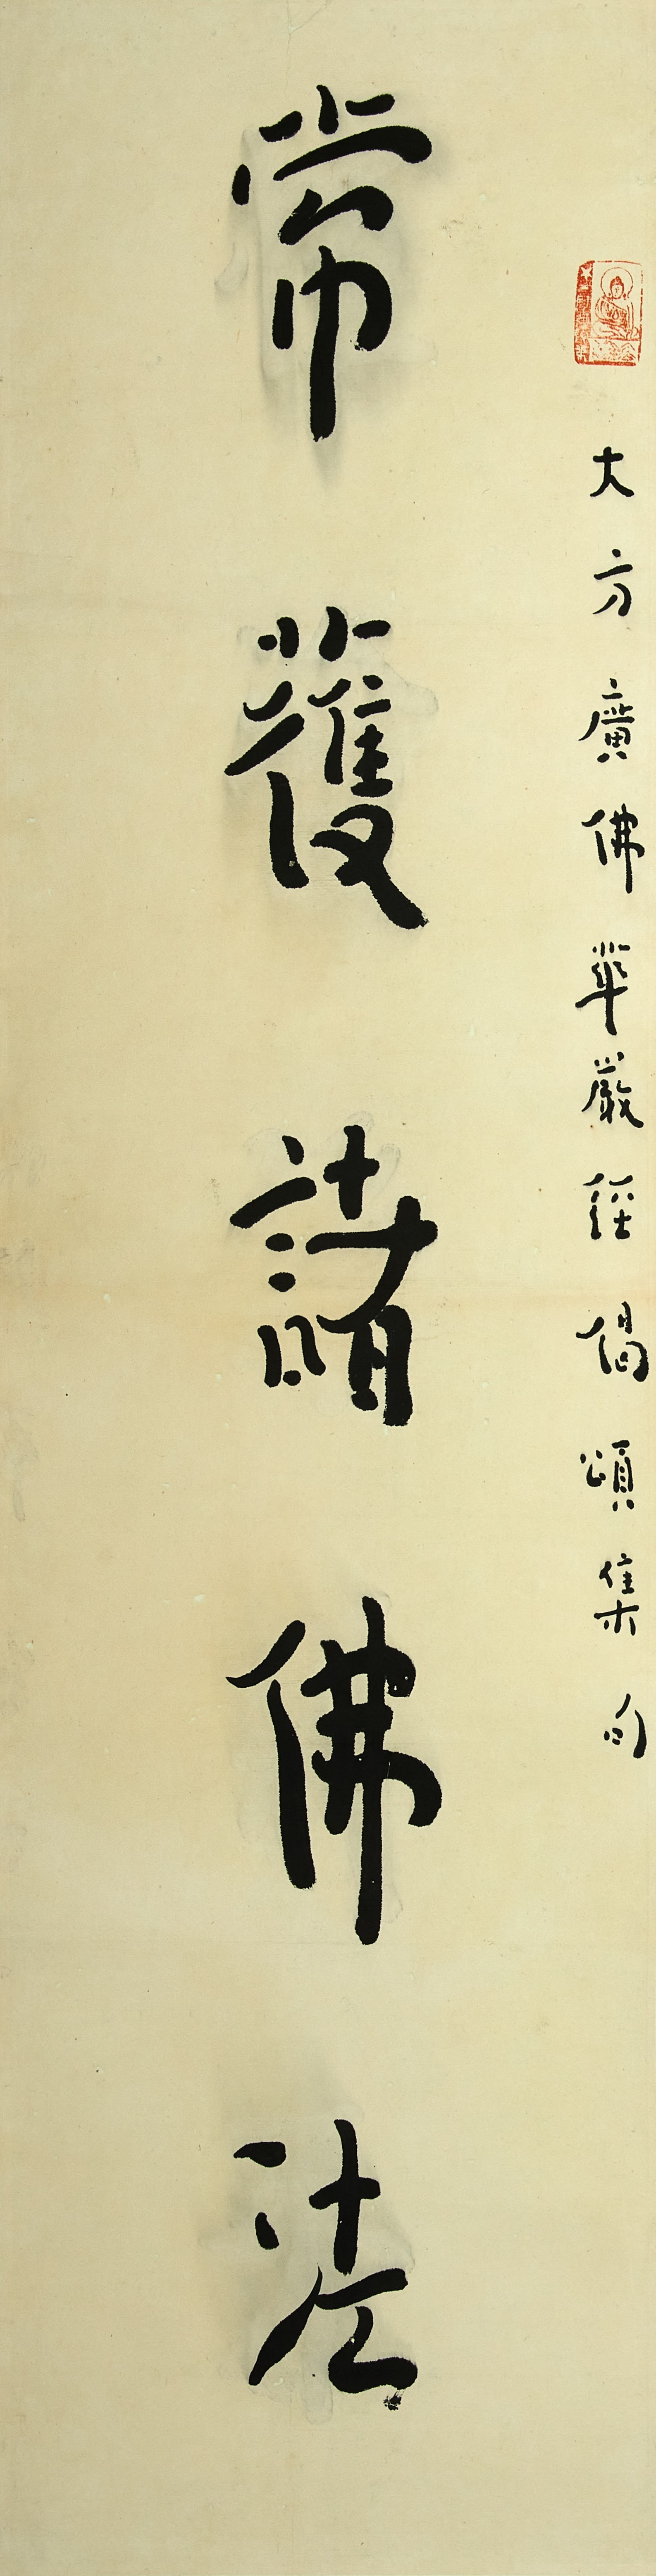 大方廣佛華嚴經偈頌集句
常獲諸佛法